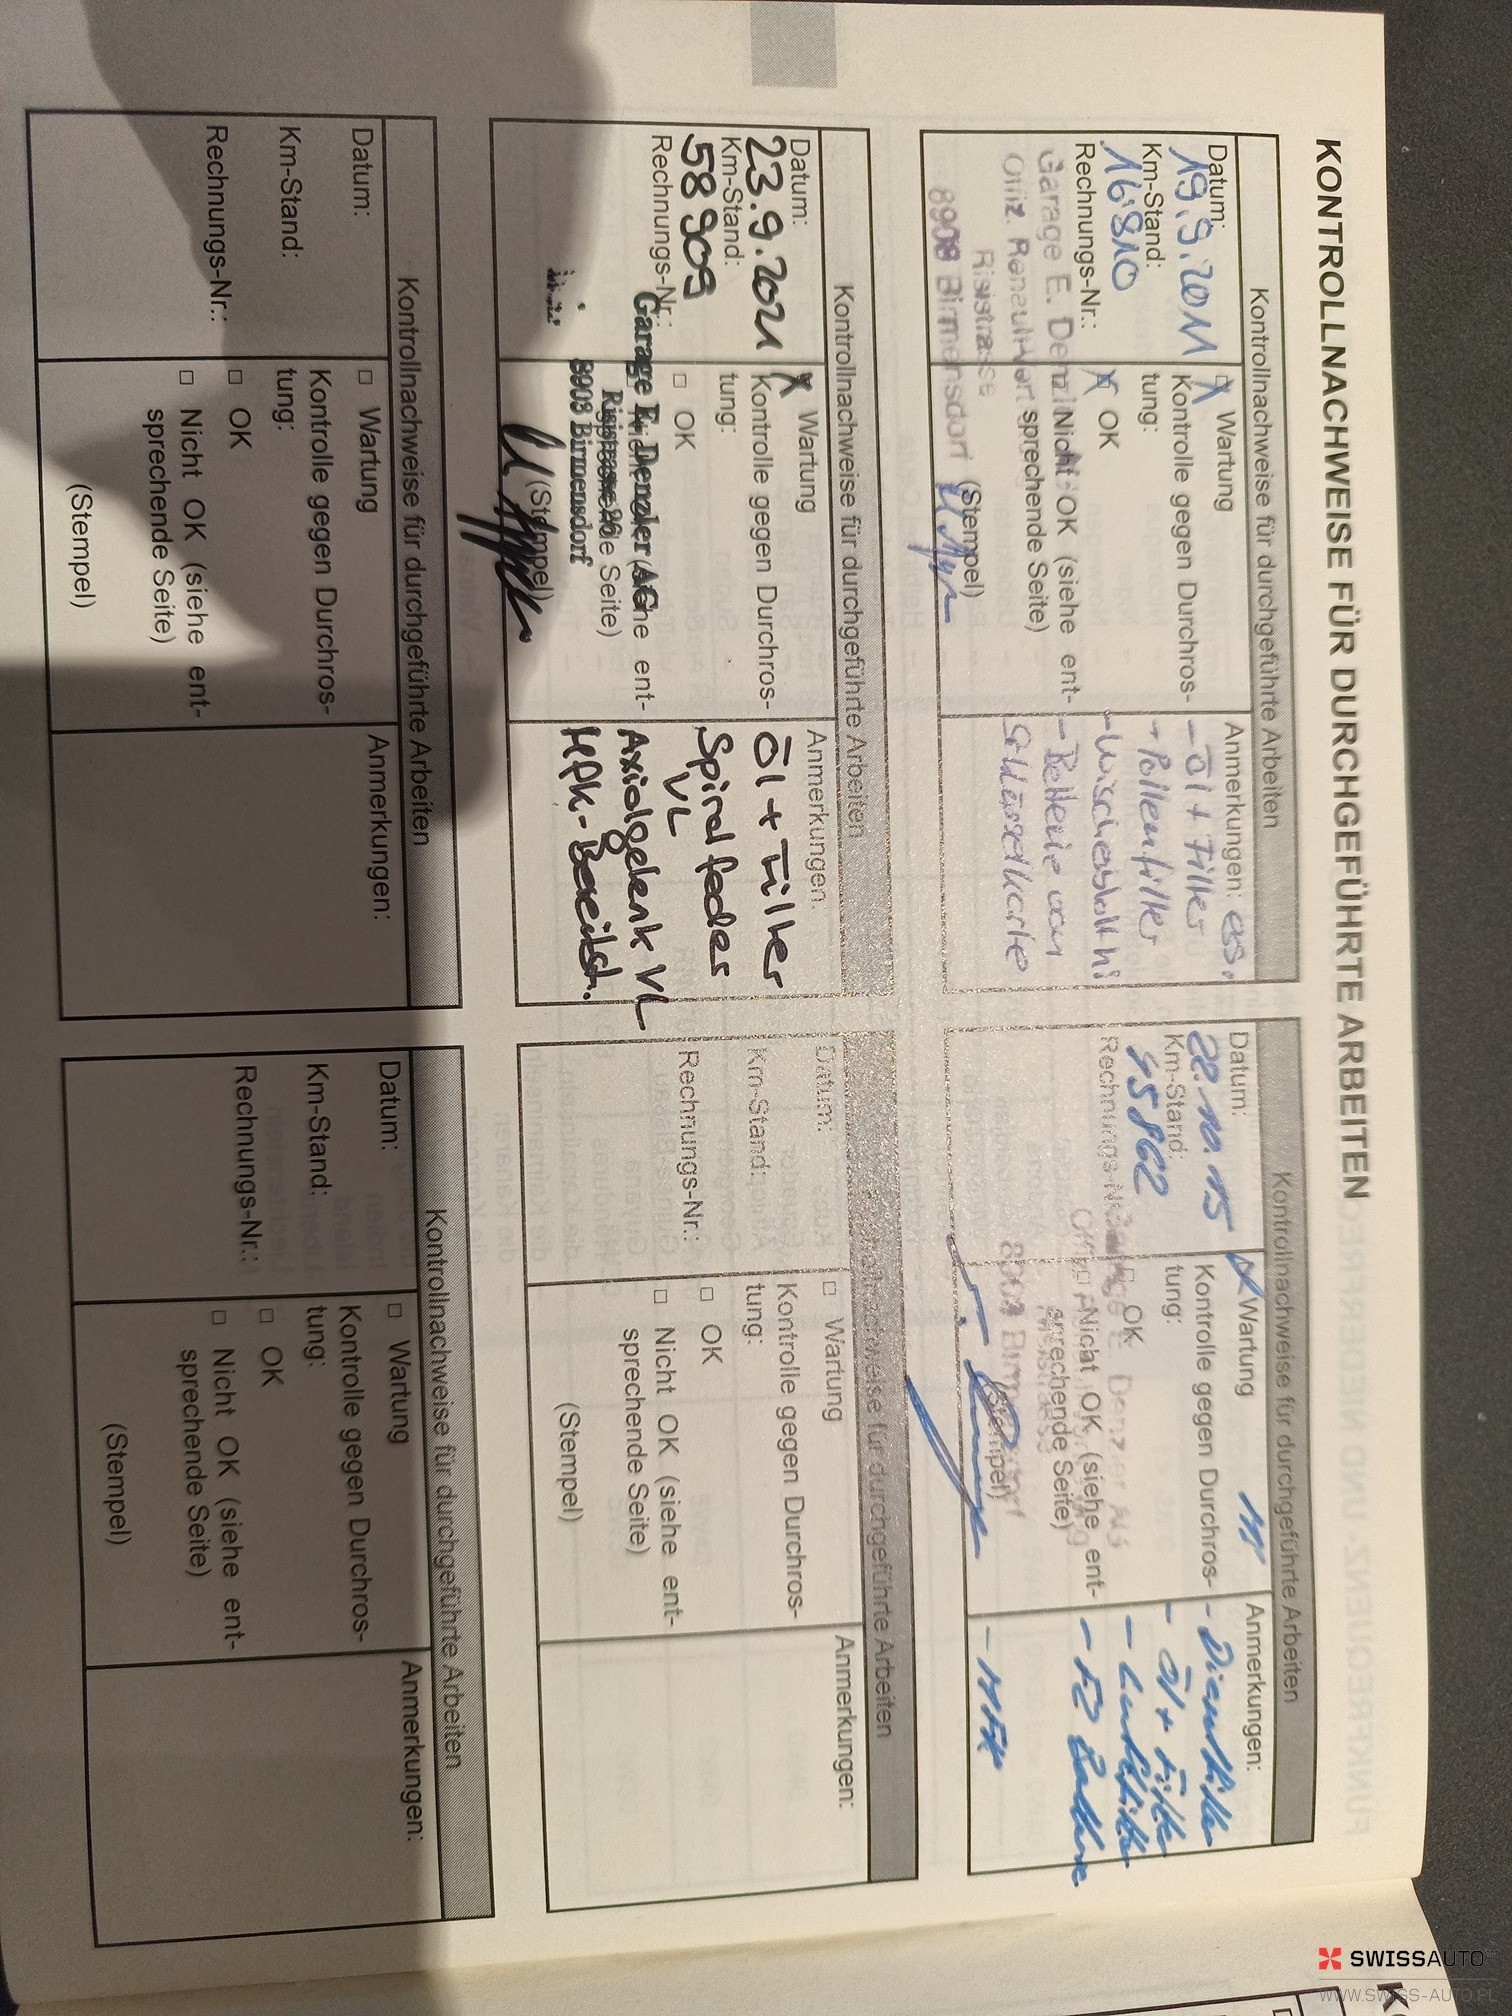 KONTROLLNACHWEISE FÜR DURCHGEFÜHRTE ARBEITEN
Kontrollnachweise für durchgeführte Arbeiten
Datum:
19.9.2011
Km-Stand:
16'810
Rechnungs-Nr.:
Garage E. Denzler
Offiz. Renault-Vert
Risistrasse
8903 Birmensdorf
X Wartung
Kontrolle gegen Durchros-
tung:
X OK
Nicht OK (siehe ent-
sprechende Seite)
(Stempel)
Anmerkungen:
- Öl + Filter
- Pollenfilter
- Wischerblatt hi
- Batterie von
Schlüsselkarte
Kontrollnachweise für durchgeführte Arbeiten
Datum:
22.10.15
Km-Stand:
45862
Rechnungs-N
8903 Birmensdorf
X Wartung
Kontrolle gegen Durchros-
tung:
□ OK
Nicht OK (siehe ent-
sprechende Seite)
(Stempel)
Anmerkungen:
- Öl + Filter
- Luftfilter
- MFK
Kontrollnachweise für durchgeführte Arbeiten
Datum:
23.9.2021
Km-Stand:
58909
Rechnungs-Nr.:
Garage E. Denzler AG
Risistrasse 26
8903 Birmensdorf
X Wartung
Kontrolle gegen Durchros-
tung:
□ OK
(siehe ent-
sprechende Seite)
(Stempel)
Anmerkungen:
Öl + Filter
Spiralfeder
VL
Axialgelenk VL
MFK-Bereitst.
Kontrollnachweise für durchgeführte Arbeiten
Datum:
Km-Stand:
Rechnungs-Nr.:
□ Wartung
Kontrolle gegen Durchros-
tung:
□ OK
□ Nicht OK (siehe ent-
sprechende Seite)
(Stempel)
Anmerkungen:
Kontrollnachweise für durchgeführte Arbeiten
Datum:
Km-Stand:
Rechnungs-Nr.:
□ Wartung
Kontrolle gegen Durchros-
tung:
□ OK
□ Nicht OK (siehe ent-
sprechende Seite)
(Stempel)
Anmerkungen:
Kontrollnachweise für durchgeführte Arbeiten
Datum:
Km-Stand:
Rechnungs-Nr.:
□ Wartung
Kontrolle gegen Durchros-
tung:
□ OK
□ Nicht OK (siehe ent-
sprechende Seite)
(Stempel)
Anmerkungen:
K
SWISSAUTO
WWW.SWISS-AUTO.PL